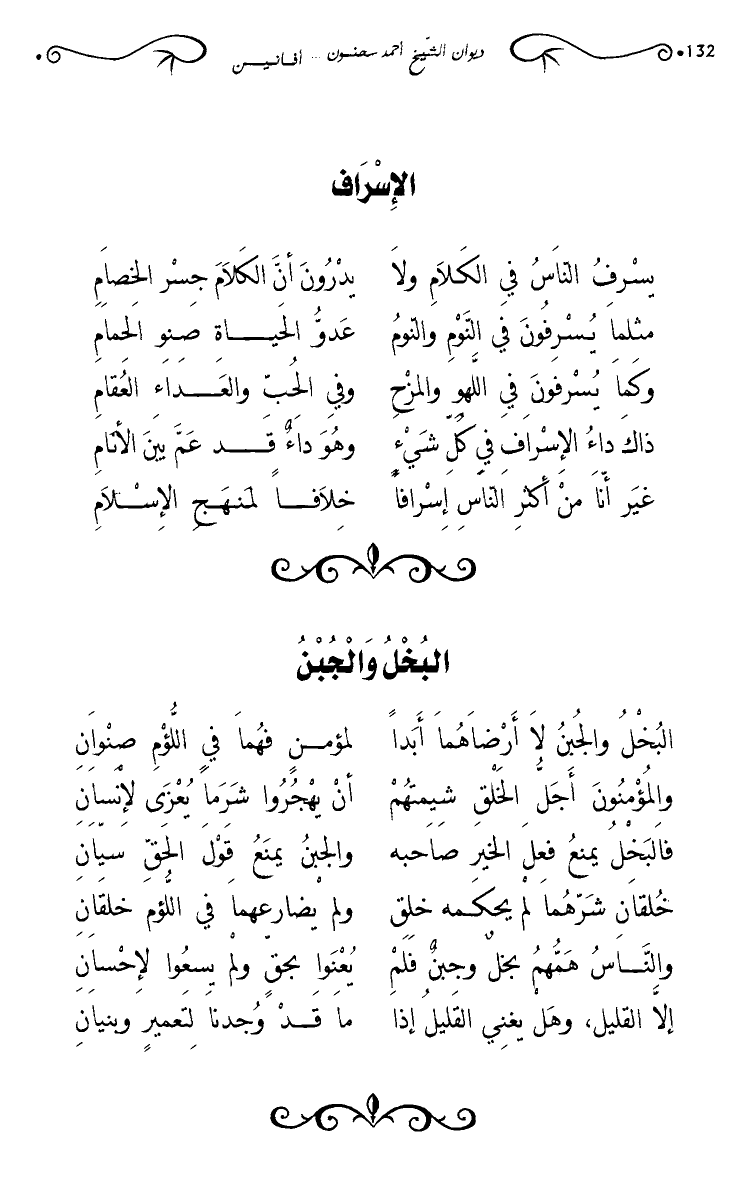 132 ديوان الشّيخ أحمد سحنـون ... أفـانـيــن
الإِسْرَاف
يسْرفُ النّاسُ في الكَلاَمِ ولاَ يدْرُونَ أنَّ الكَلاَمَ جسْر الخِصامِ
مثلما يُسْرِفُونَ في النَّوْمِ والنّومُ عَدوُّ الحيــــاةِ صنو الحِمامِ
وكَما يُسْرفونَ في اللَّهوِ والمزْحِ وفي الحُبِّ والعَــــداءِ العُقامِ
ذاك داءُ الإسْرافِ في كُلِّ شَيْءٍ وهُوَ داءٌ قــــد عَمَّ بينَ الأنَامِ
غيَر أنَّا منْ أكثرِ النّاسِ إسْرافاً خلِاَفــاً لمَنهَجِ الإســْلاَمِ
البُخْلُ وَالْجُبْنُ
البُخْلُ والجُبنُ لاَ أَرْضاَهُماَ أَبَداً لمؤمــنٍ فهُماَ في اللُّؤْمِ صِنْوانِ
والمُؤْمنُونَ أَجَلُّ الخَلْقِ شيِمتهُمْ أنْ يهْجُرُوا شَرَماَ يُعْزَى لإنْسانِ
فالبَخْلُ يمنعُ فعلَ الخيرِ صاحبه والجبنُ يمنَعُ قَوْل الحَقّ سيّانِ
خُلقانِ شَرّهُما لمْ يحكــمه خلق ولم يْضارعهما في اللُّؤم خلقَانِ
والنَّــاسُ هَمُّهمُ بخلٌ وجبنٌ فَلَمْ يُعْنَوا بحقٍّ ولمْ يسعُوا لإحْسانِ
إلاَّ القليل، وهَلْ يغنِي القليلُ إذا ما قَــدْ وُجدنا لتعميرٍ وبنيانِ